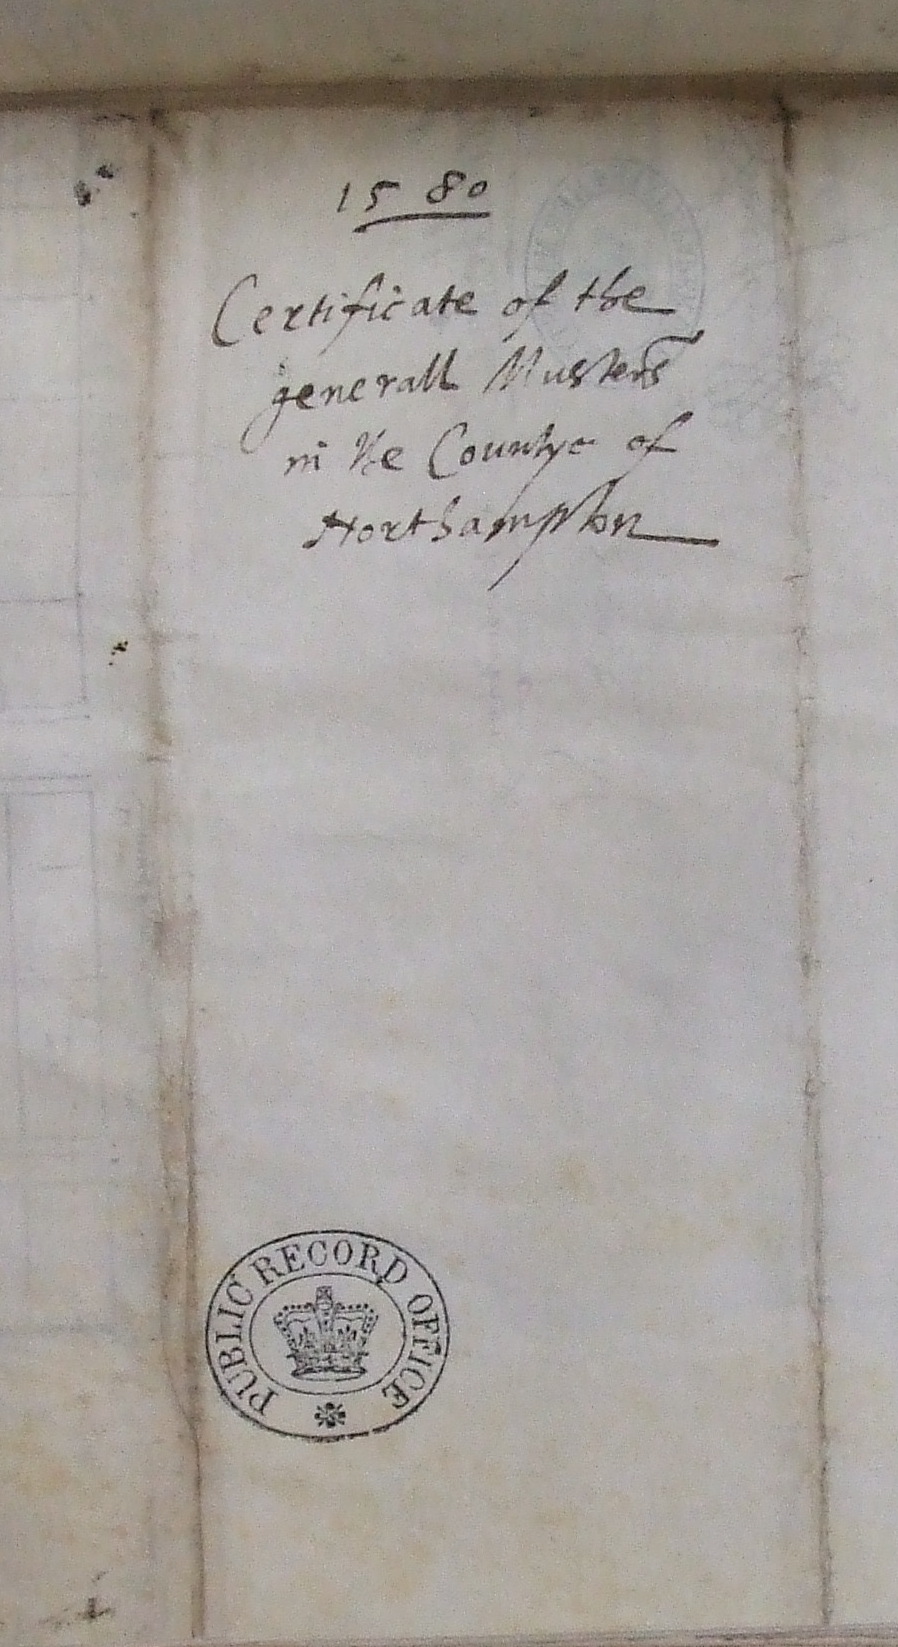 1580
Certificate of the
generall Musters
in the Countye of
Northampton
PUBLIC RECORD OFFICE